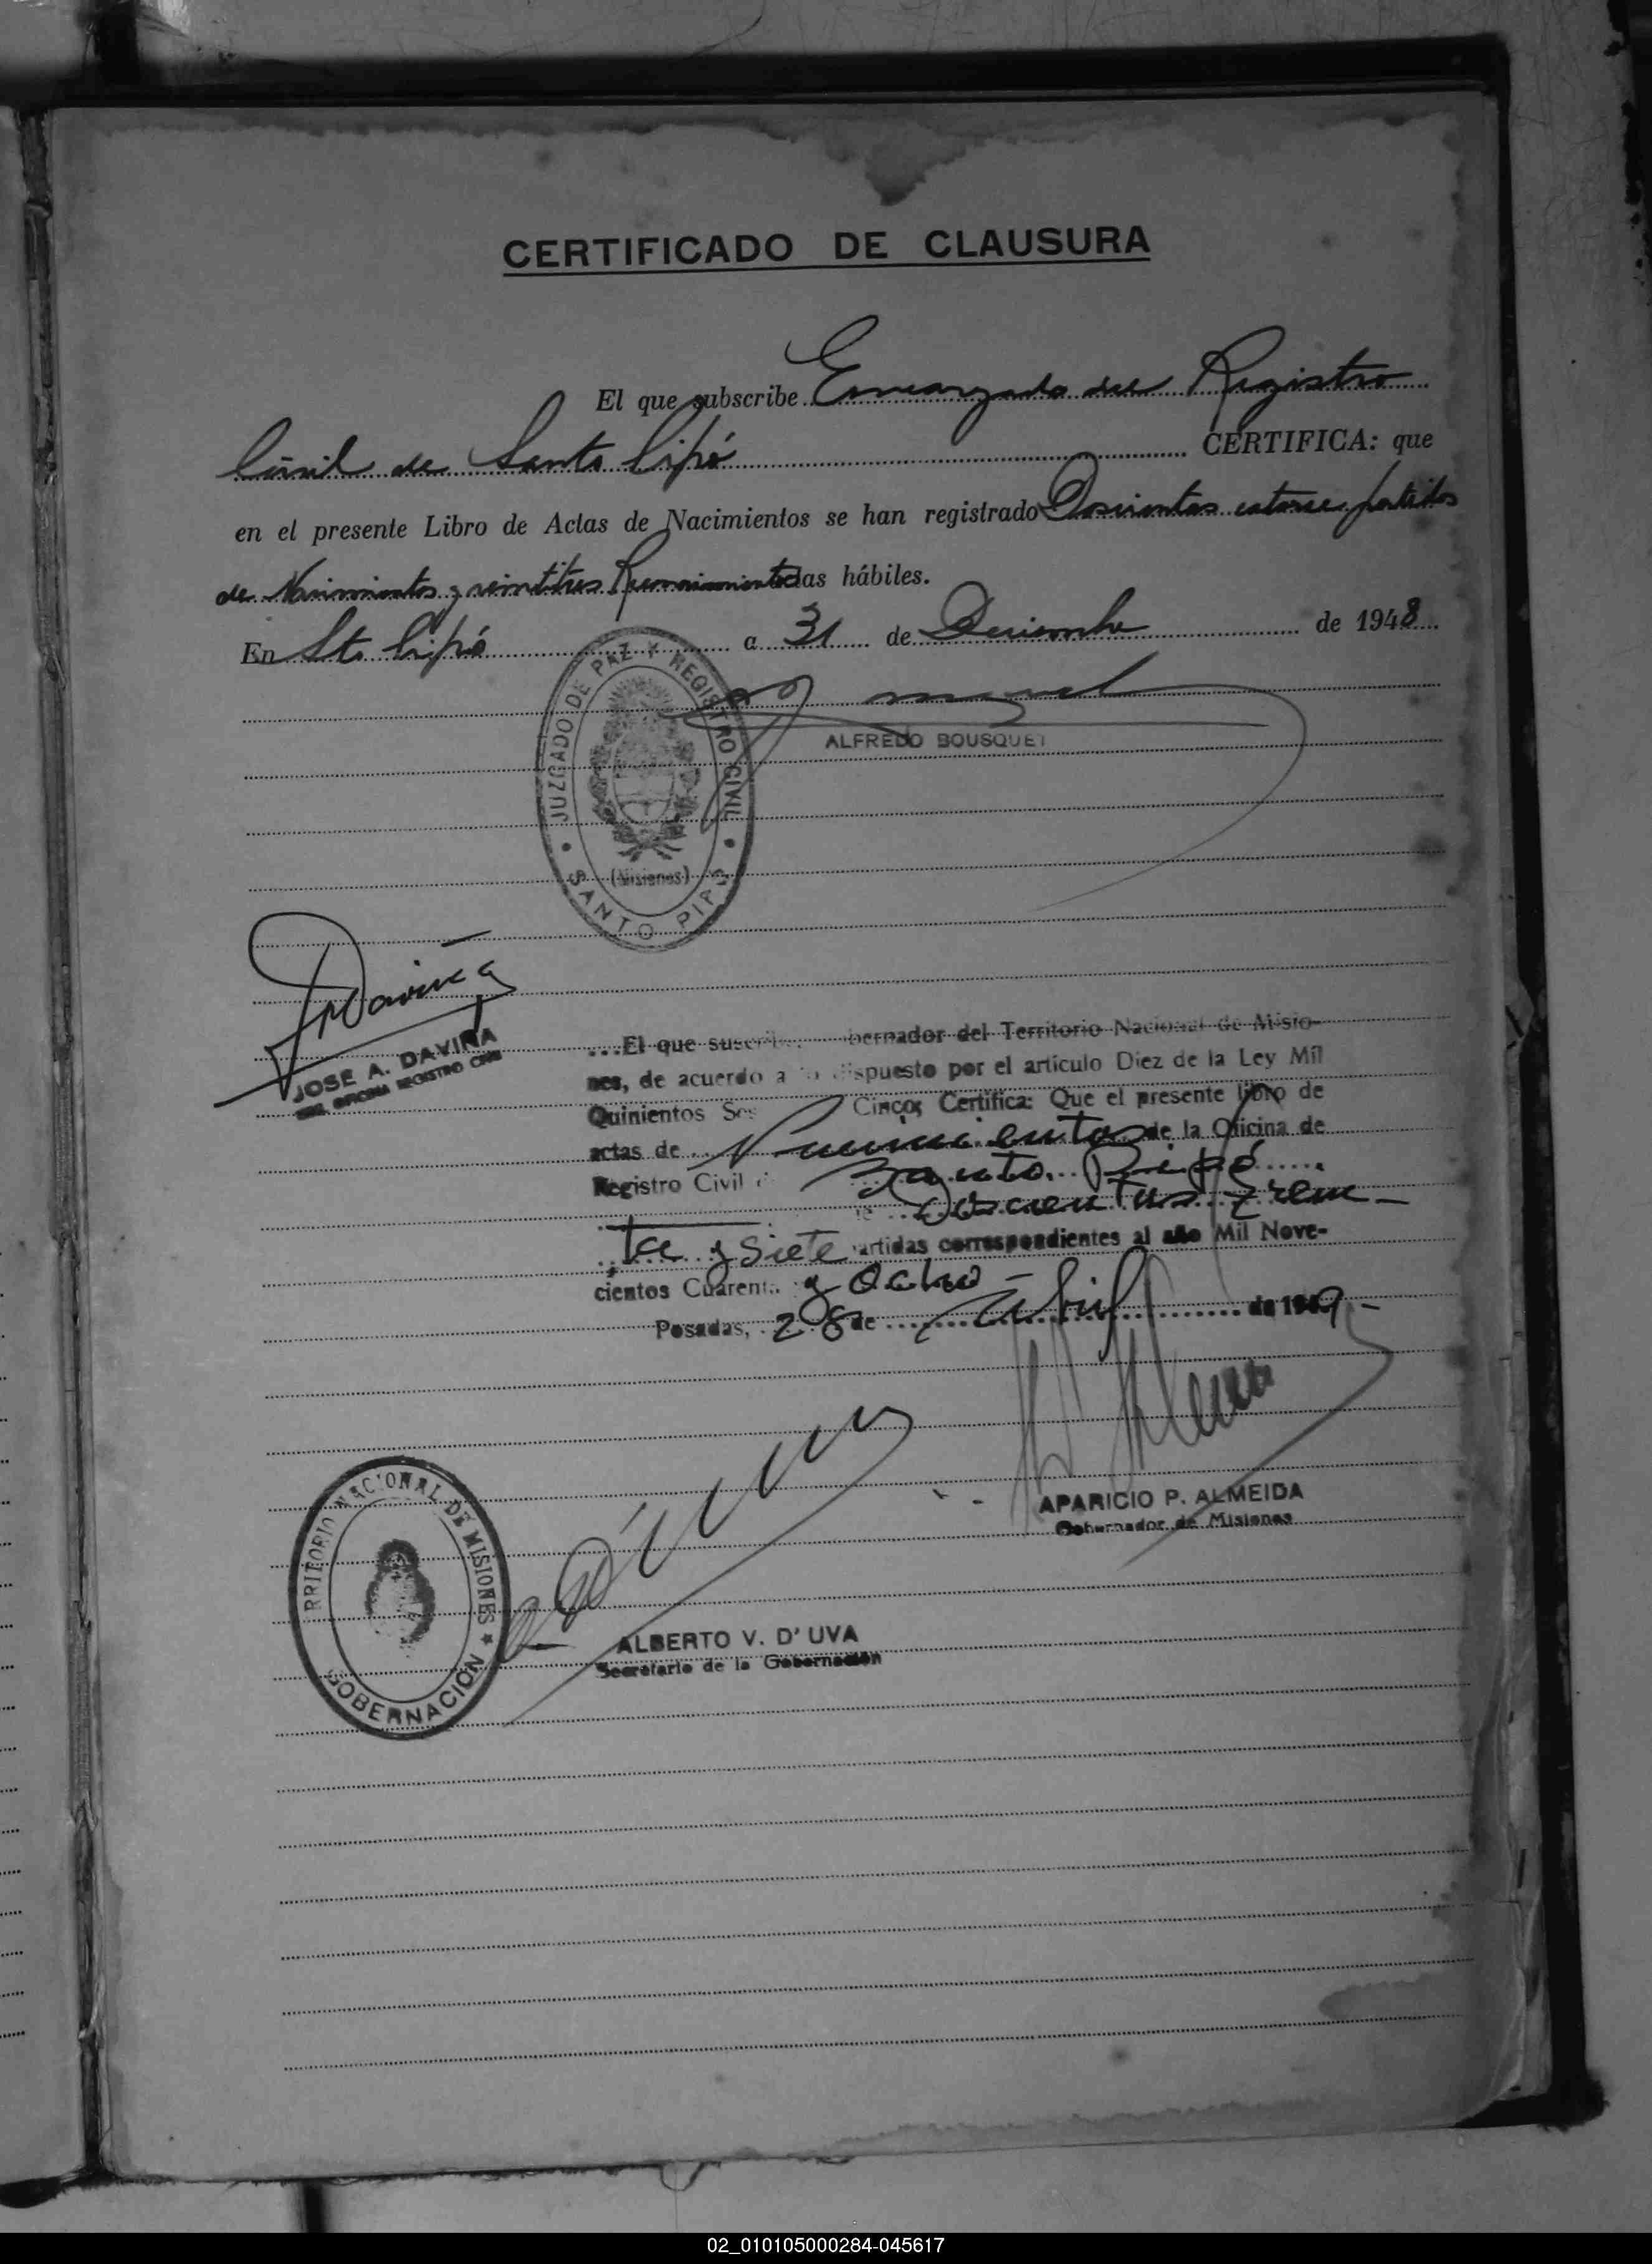 CERTIFICADO DE CLAUSURA
El que subscribe Encargado del Registro
Civil de Santo Pipó CERTIFICA: que
en el presente Libro de Actas de Nacimientos se han registrado Doscientas catorce partidas
de Nacimientos y veintitres Reconocimientos das hábiles.
En Sto Pipó a 31 de Diciembre de 1948
JUZGADO DE PAZ Y REGISTRO CIVIL
(Misiones)
SANTO PIPÓ
ALFREDO BOUSQUET
JDaviña
JOSE A. DAVIÑA
OFICINA REGISTRO CIVIL
El que suscribe bernador del Territorio Nacional de Misio-
nes, de acuerdo a lo dispuesto por el artículo Diez de la Ley Mil
Quinientos Ses Cinco; Certifica: Que el presente libro de
actas de Nacimientos de la Oficina de
Registro Civil d Santo Pipó
Doscientas Trein-
ta y Siete artidas correspondientes al año Mil Nove-
cientos Cuarenta y Ocho -
Posadas, 28 de Abril de 1949 -
APARICIO P. ALMEIDA
Gobernador de Misiones
RRITORIO NACIONAL DE MISIONES
GOBERNACIÓN
ALBERTO V. D' UVA
Secretario de la Gobernación
02_010105000284-045617